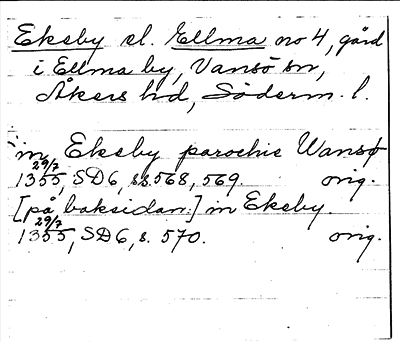 Eksby el. Ellma no 4, gård
i Ellma by, Vansö sn,
Åkers hd, Söderm. l.
in Eksby parochie Wansø
29/7
1355, SD6, ss. 568, 569. orig.
[på baksidan:] in Eksby.
29/7
1355, SD6, s. 570. orig.